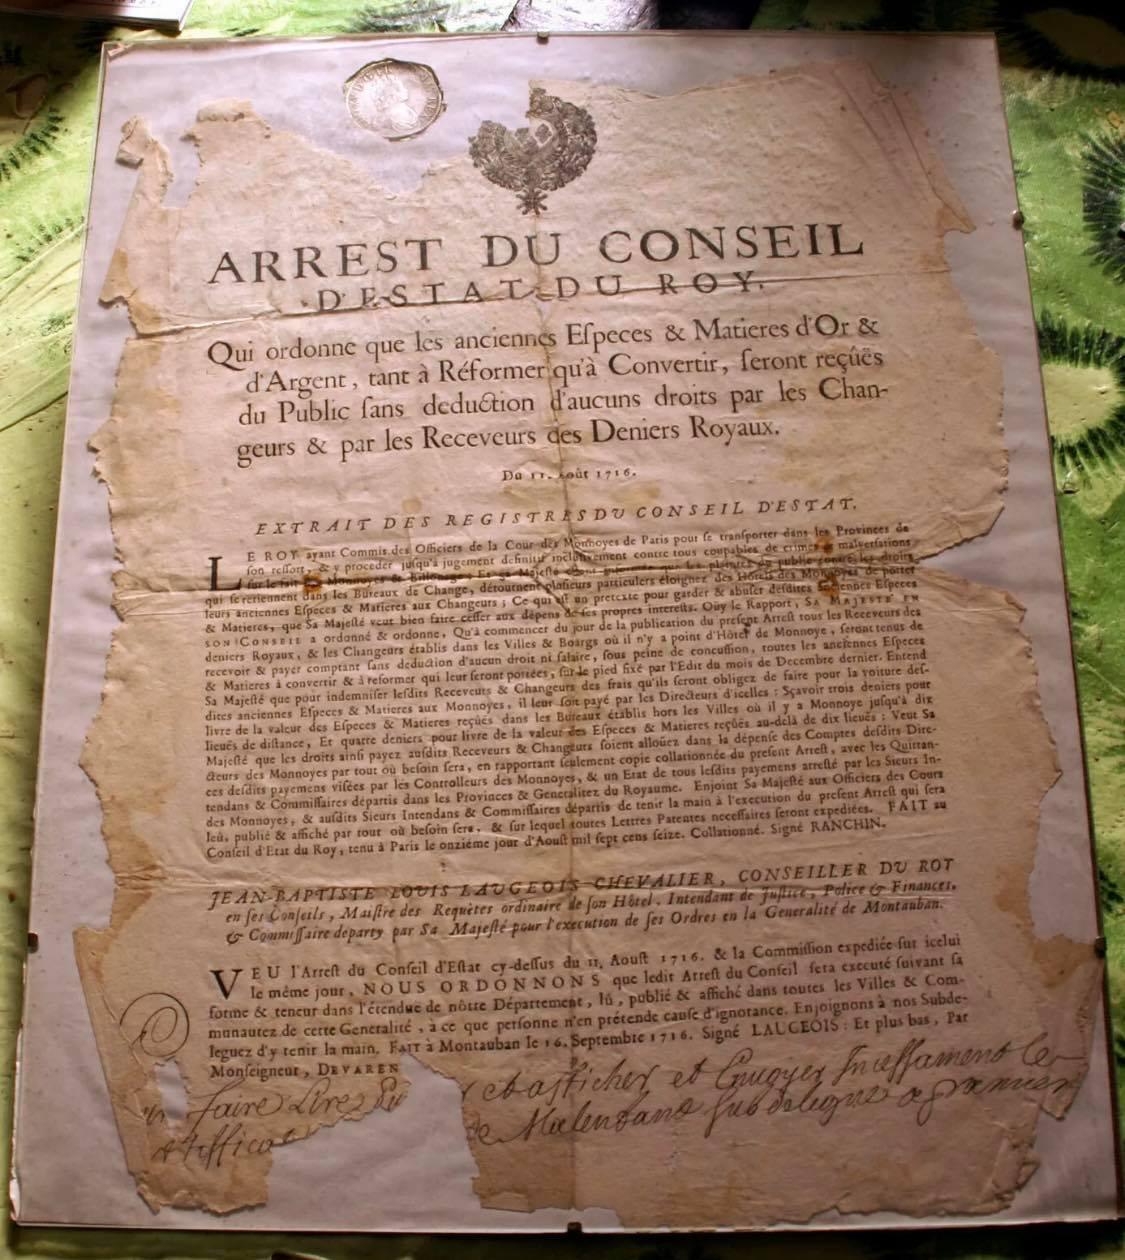 ARREST DU CONSEIL
D'ESTAT DU ROY.
Qui ordonne que les anciennes Eſpeces & Matieres d'Or &
d'Argent, tant à Réformer qu'à Convertir, ſeront reçûës
du Public ſans deduction d'aucuns droits par les Chan-
geurs & par les Receveurs des Deniers Royaux.
Du 11. Août 1716.
EXTRAIT DES REGISTRES DU CONSEIL D'ESTAT.
LE ROY ayant Commis des Officiers de la Cour des Monnoyes de Paris pour ſe transporter dans les Provinces de
ſon reſſort, & y proceder juſqu'à jugement definitif incluſivement contre tous coupables de crimes & malverſations
ſur le fait Monnoyes & Billonage; Et Sa Majeſté étant informée que les plaintes du public contre les droits
qui ſe retiennent dans les Bureaux de Change, détournent pluſieurs particuliers éloignez des Hôtels des Monnoyes de porter
leurs anciennes Eſpeces & Matieres aux Changeurs; Ce qui eſt un pretexte pour garder & abuſer deſdites anciennes Eſpeces
& Matieres, que Sa Majeſté veut bien faire ceſſer aux dépens de ſes propres intereſts. Oüy le Rapport, SA MAJESTÉ EN
SON CONSEIL a ordonné & ordonne, Qu'à commencer du jour de la publication du preſent Arreſt tous les Receveurs des
deniers Royaux, & les Changeurs établis dans les Villes & Bourgs où il n'y a point d'Hôtel de Monnoye, ſeront tenus de
recevoir & payer comptant ſans deduction d'aucun droit ni ſalaire, ſous peine de concuſſion, toutes les anciennes Eſpeces
& Matieres à convertir & à reformer qui leur ſeront portées, ſur le pied fixé par l'Edit du mois de Decembre dernier. Entend
Sa Majeſté que pour indemniſer leſdits Receveurs & Changeurs des frais qu'ils ſeront obligez de faire pour la voiture deſ-
dites anciennes Eſpeces & Matieres aux Monnoyes, il leur ſoit payé par les Directeurs d'icelles: Sçavoir trois deniers pour
livre de la valeur des Eſpeces & Matieres reçûës dans les Bureaux établis hors les Villes où il y a Monnoye juſqu'à dix
lieuës de diſtance, Et quatre deniers pour livre de la valeur des Eſpeces & Matieres reçûës au-delà de dix lieuës: Veut Sa
Majeſté que les droits ainſi payez auſdits Receveurs & Changeurs ſoient alloüez dans la dépenſe des Comptes deſdits Dire-
cteurs des Monnoyes par tout où beſoin ſera, en rapportant ſeulement copie collationnée du preſent Arreſt, avec les Quittan-
ces deſdits payemens viſées par les Controlleurs des Monnoyes, & un Etat de tous leſdits payemens arreſté par les Sieurs In-
tendans & Commiſſaires départis dans les Provinces & Generalitez du Royaume. Enjoint Sa Majeſté aux Officiers des Cours
des Monnoyes, & auſdits Sieurs Intendans & Commiſſaires départis de tenir la main à l'execution du preſent Arreſt qui ſera
leû, publié & affiché par tout où beſoin ſera, & ſur lequel toutes Lettres Patentes neceſſaires ſeront expediées. FAIT au
Conſeil d'Etat du Roy, tenu à Paris le onziéme jour d'Aouſt mil ſept cens ſeize. Collationné. Signé RANCHIN.
JEAN-BAPTISTE LOUIS LAUGEOIS CHEVALIER, CONSEILLER DU ROY
en ſes Conſeils, Maiſtre des Requètes ordinaire de ſon Hôtel, Intendant de Juſtice, Police & Finances,
& Commiſſaire departy par Sa Majeſté pour l'execution de ſes Ordres en la Generalité de Montauban.
VEU l'Arreſt du Conſeil d'Eſtat cy-deſſus du 11. Aouſt 1716. & la Commiſſion expediée ſur icelui
le même jour, NOUS ORDONNONS que ledit Arreſt du Conſeil ſera executé ſuivant ſa
forme & teneur dans l'étenduë de nôtre Département, lû, publié & affiché dans toutes les Villes & Com-
munautez de cette Generalité, à ce que perſonne n'en prétende cauſe d'ignorance. Enjoignons à nos Subde-
leguez d'y tenir la main. FAIT à Montauban le 16. Septembre 1716. Signé LAUGEOIS: Et plus bas, Par
Monſeigneur, DEVAREN
faire Lire et afficher et Envoyer Inceſſament le